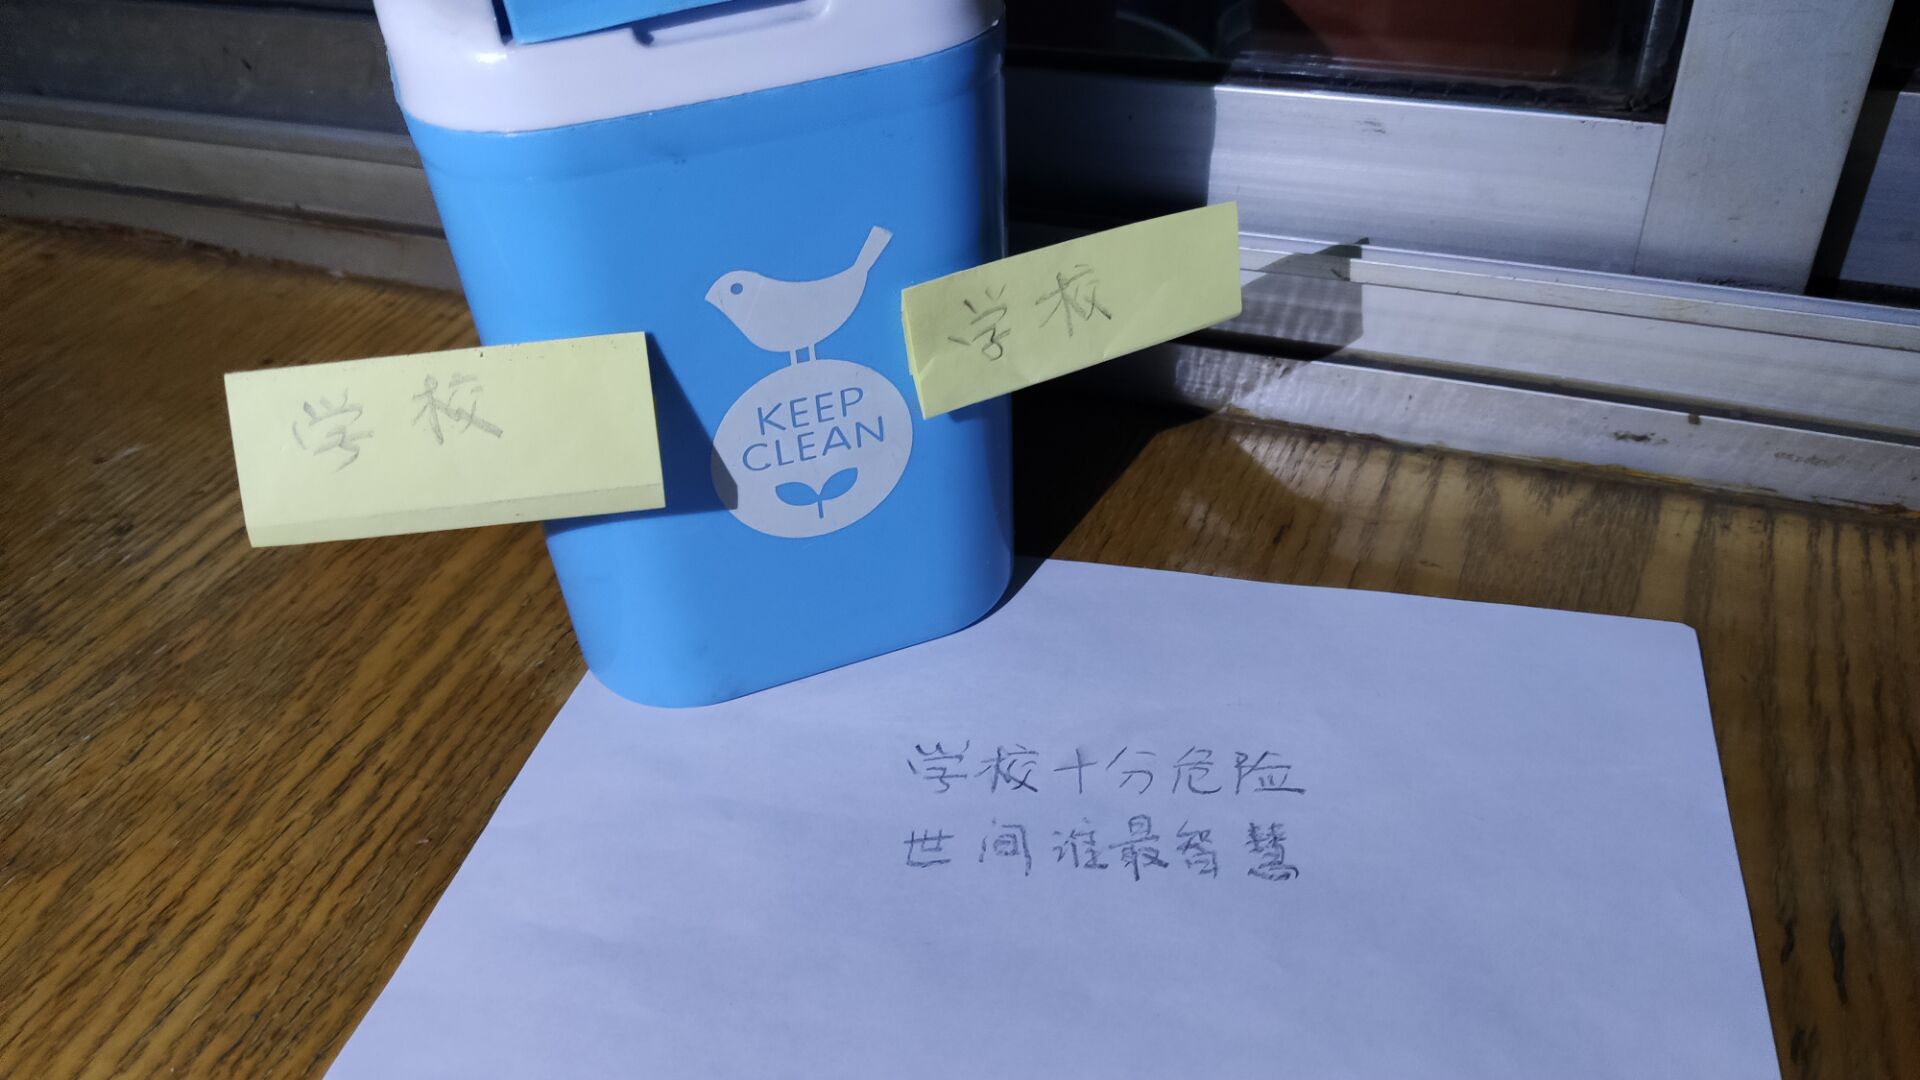 学校
学校
KEEP
CLEAN
学校十分危险
世间谁最智慧